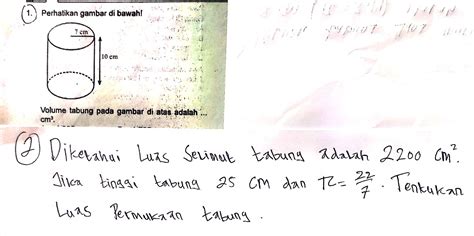 1. Perhatikan gambar di bawah!
7 cm
10 cm
Volume tabung pada gambar di atas adalah ...
cm³.
2 Diketahui Luas Selimut tabung adalah 2200 cm².
Jika tinggi tabung 25 cm dan π = 22/7. Tentukan
Luas Permukaan tabung.